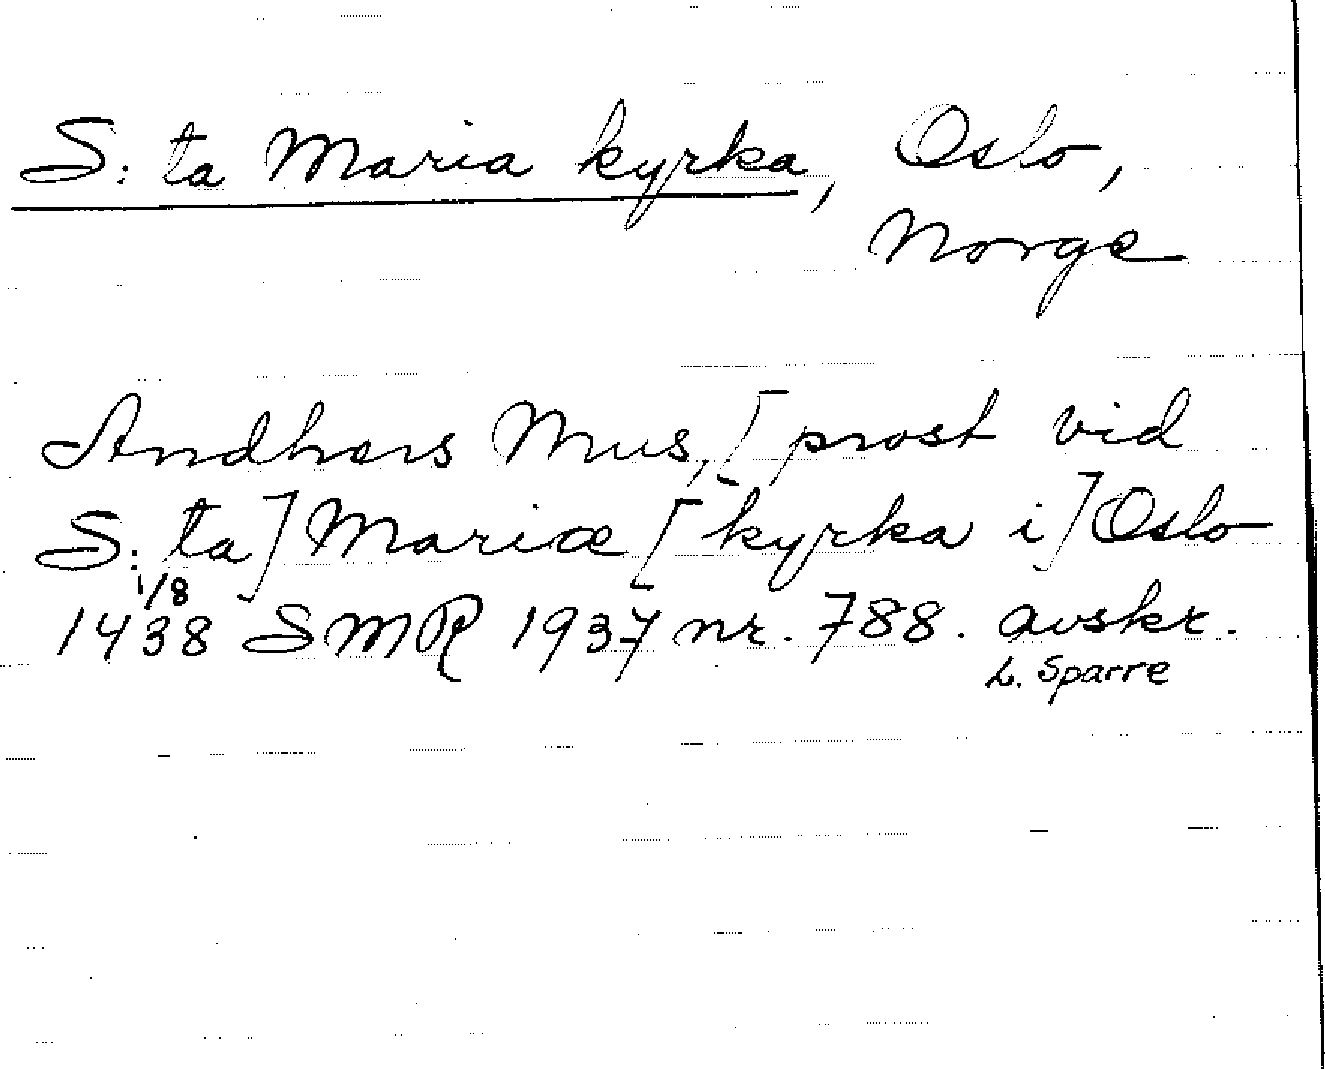 S:ta Maria kyrka, Oslo,
Norge
Andhers Mus, [prost vid
S:ta] Mariæ [kyrka i] Oslo
1/8
1438 SMR 1937 nr. 788. avskr.
L. Sparre